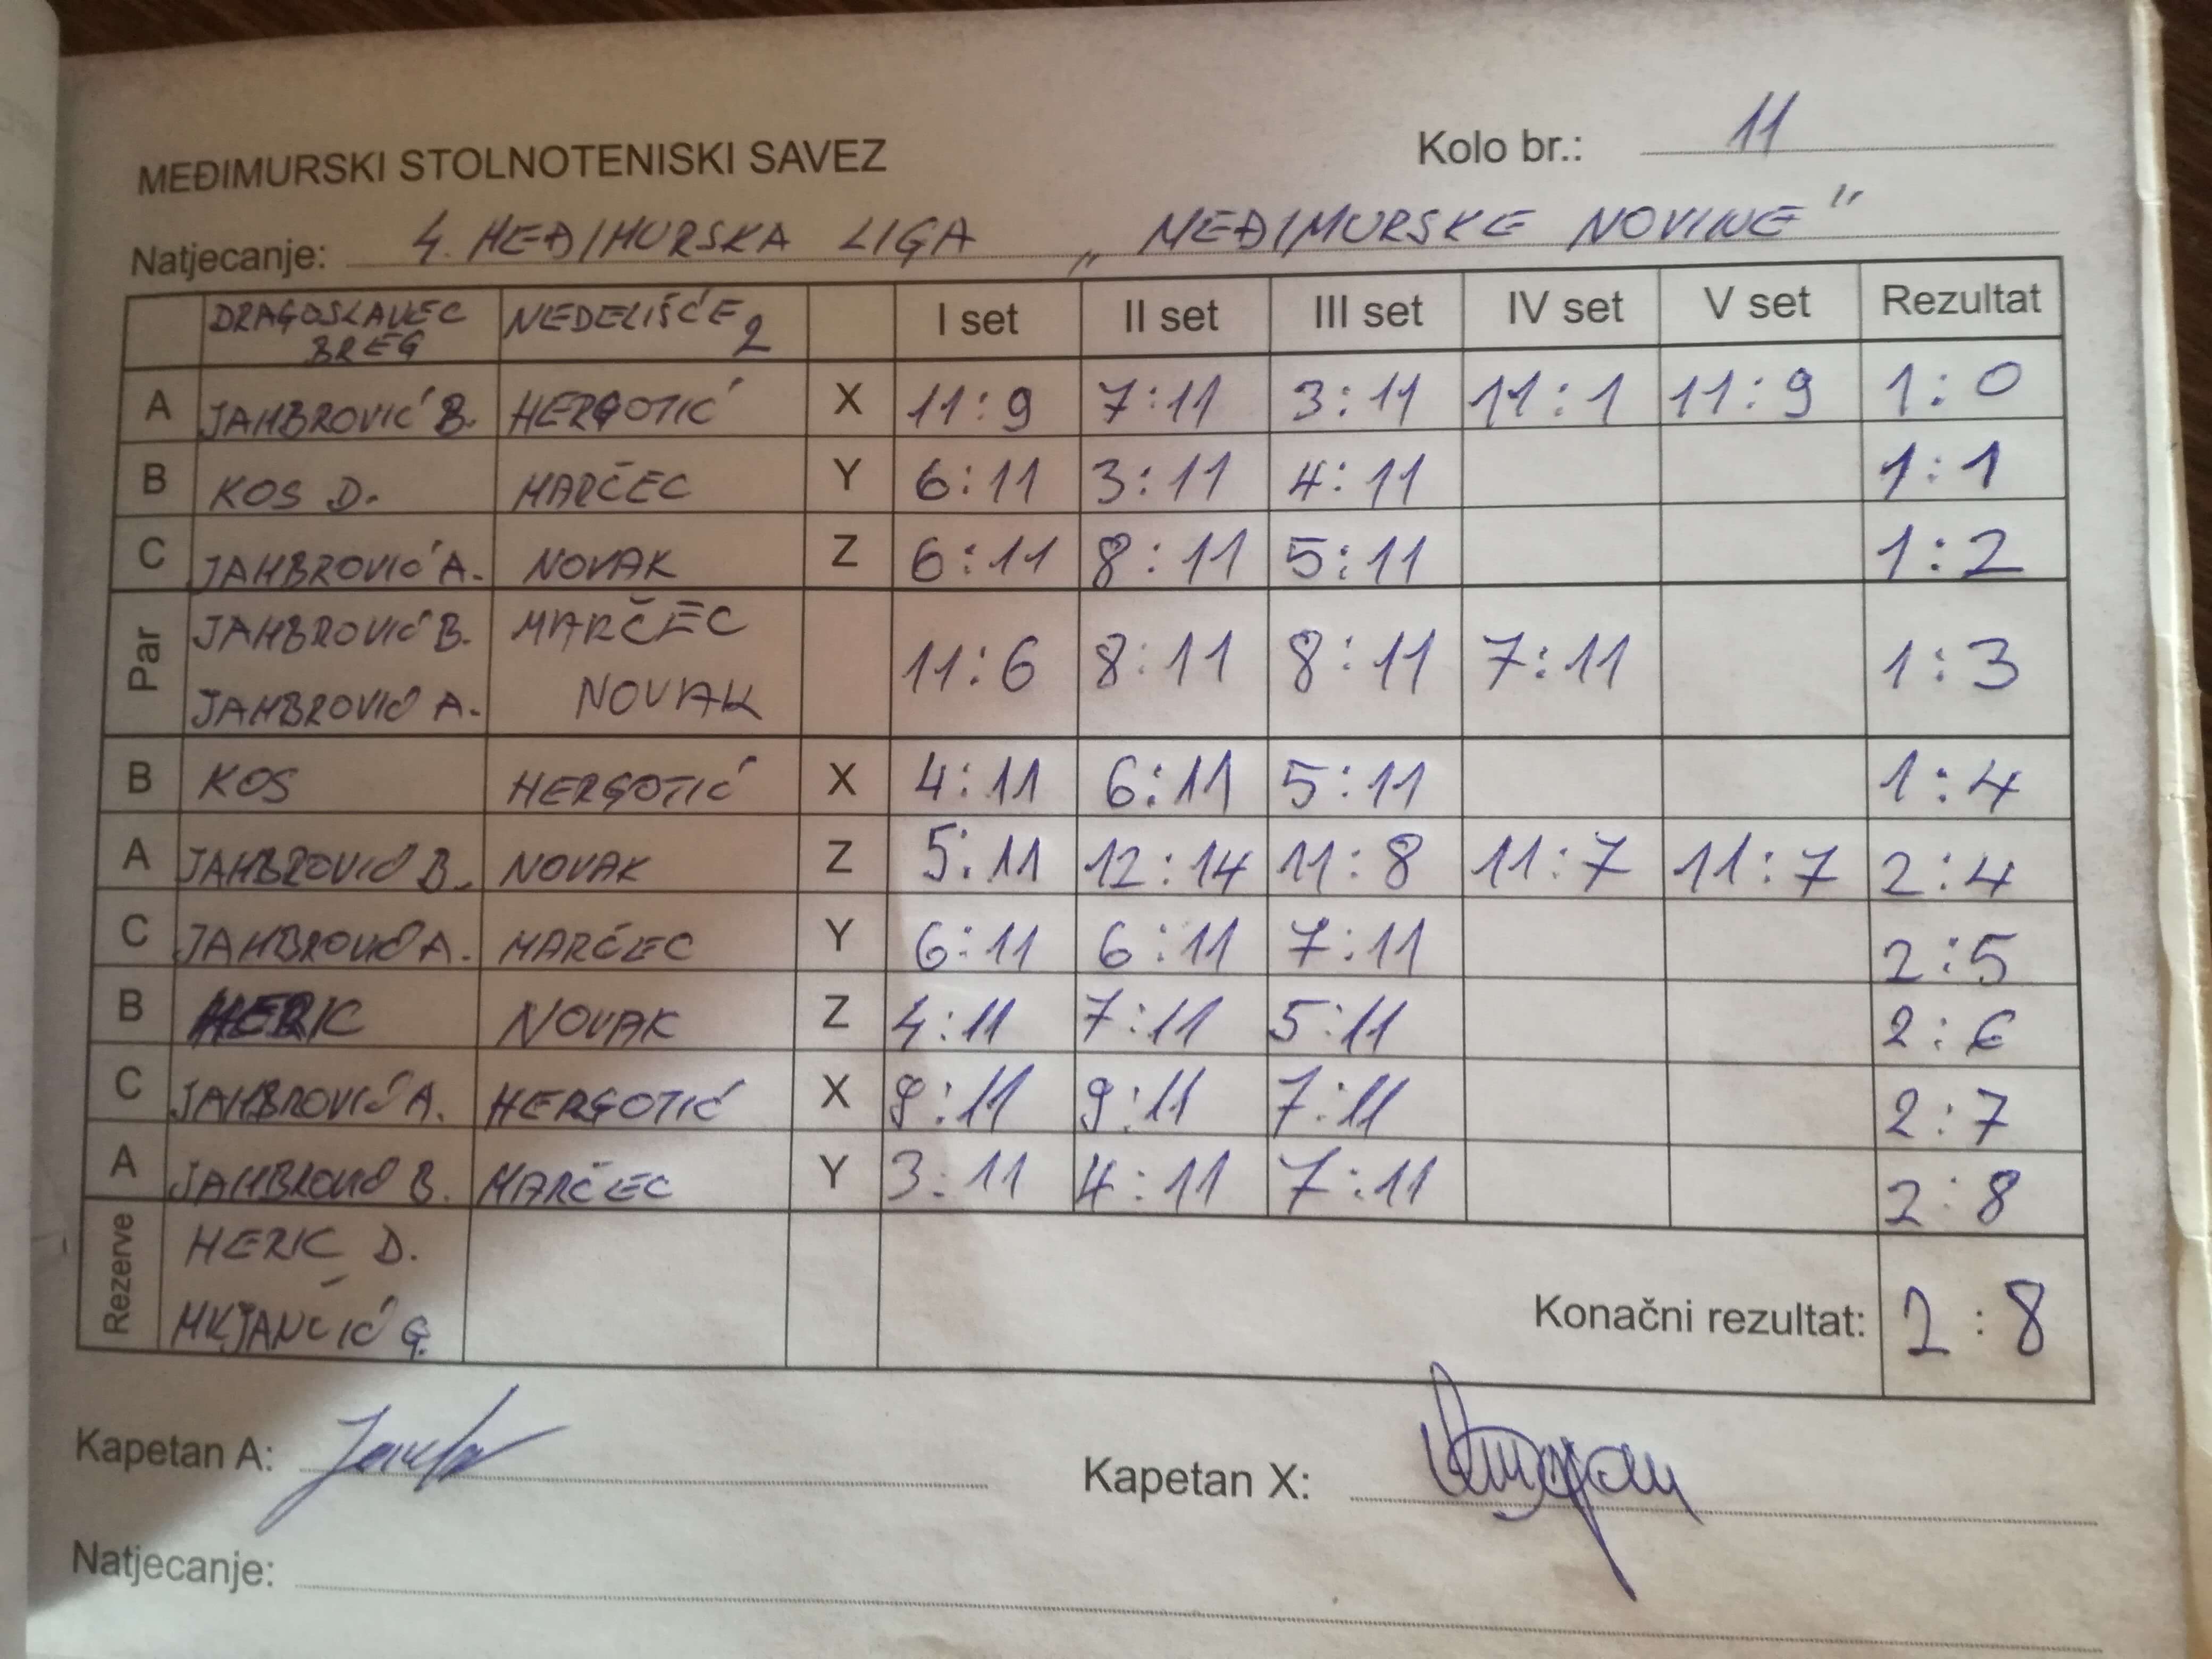 MEĐIMURSKI STOLNOTENISKI SAVEZ Kolo br.: 11
Natjecanje: 4. MEĐIMURSKA LIGA „MEĐIMURSKE NOVINE"
DRAGOSLAVEC BREG NEDELIŠĆE 2 I set II set III set IV set V set Rezultat
A JAMBROVIĆ B. HERGOTIĆ X 11:9 7:11 3:11 11:1 11:9 1:0
B KOS D. MARČEC Y 6:11 3:11 4:11 1:1
C JAMBROVIĆ A. NOVAK Z 6:11 8:11 5:11 1:2
Par JAMBROVIĆ B. MARČEC 11:6 8:11 8:11 7:11 1:3
JAMBROVIĆ A. NOVAK
B KOS HERGOTIĆ X 4:11 6:11 5:11 1:4
A JAMBROVIĆ B. NOVAK Z 5:11 12:14 11:8 11:7 11:7 2:4
C JAMBROVIĆ A. MARČEC Y 6:11 6:11 7:11 2:5
B HERIC NOVAK Z 4:11 7:11 5:11 2:6
C JAMBROVIĆ A. HERGOTIĆ X 8:11 9:11 7:11 2:7
A JAMBROVIĆ B. MARČEC Y 3:11 4:11 7:11 2:8
Rezerve HERIC D.
G.
Konačni rezultat: 2:8
Kapetan A: Kapetan X:
Natjecanje: